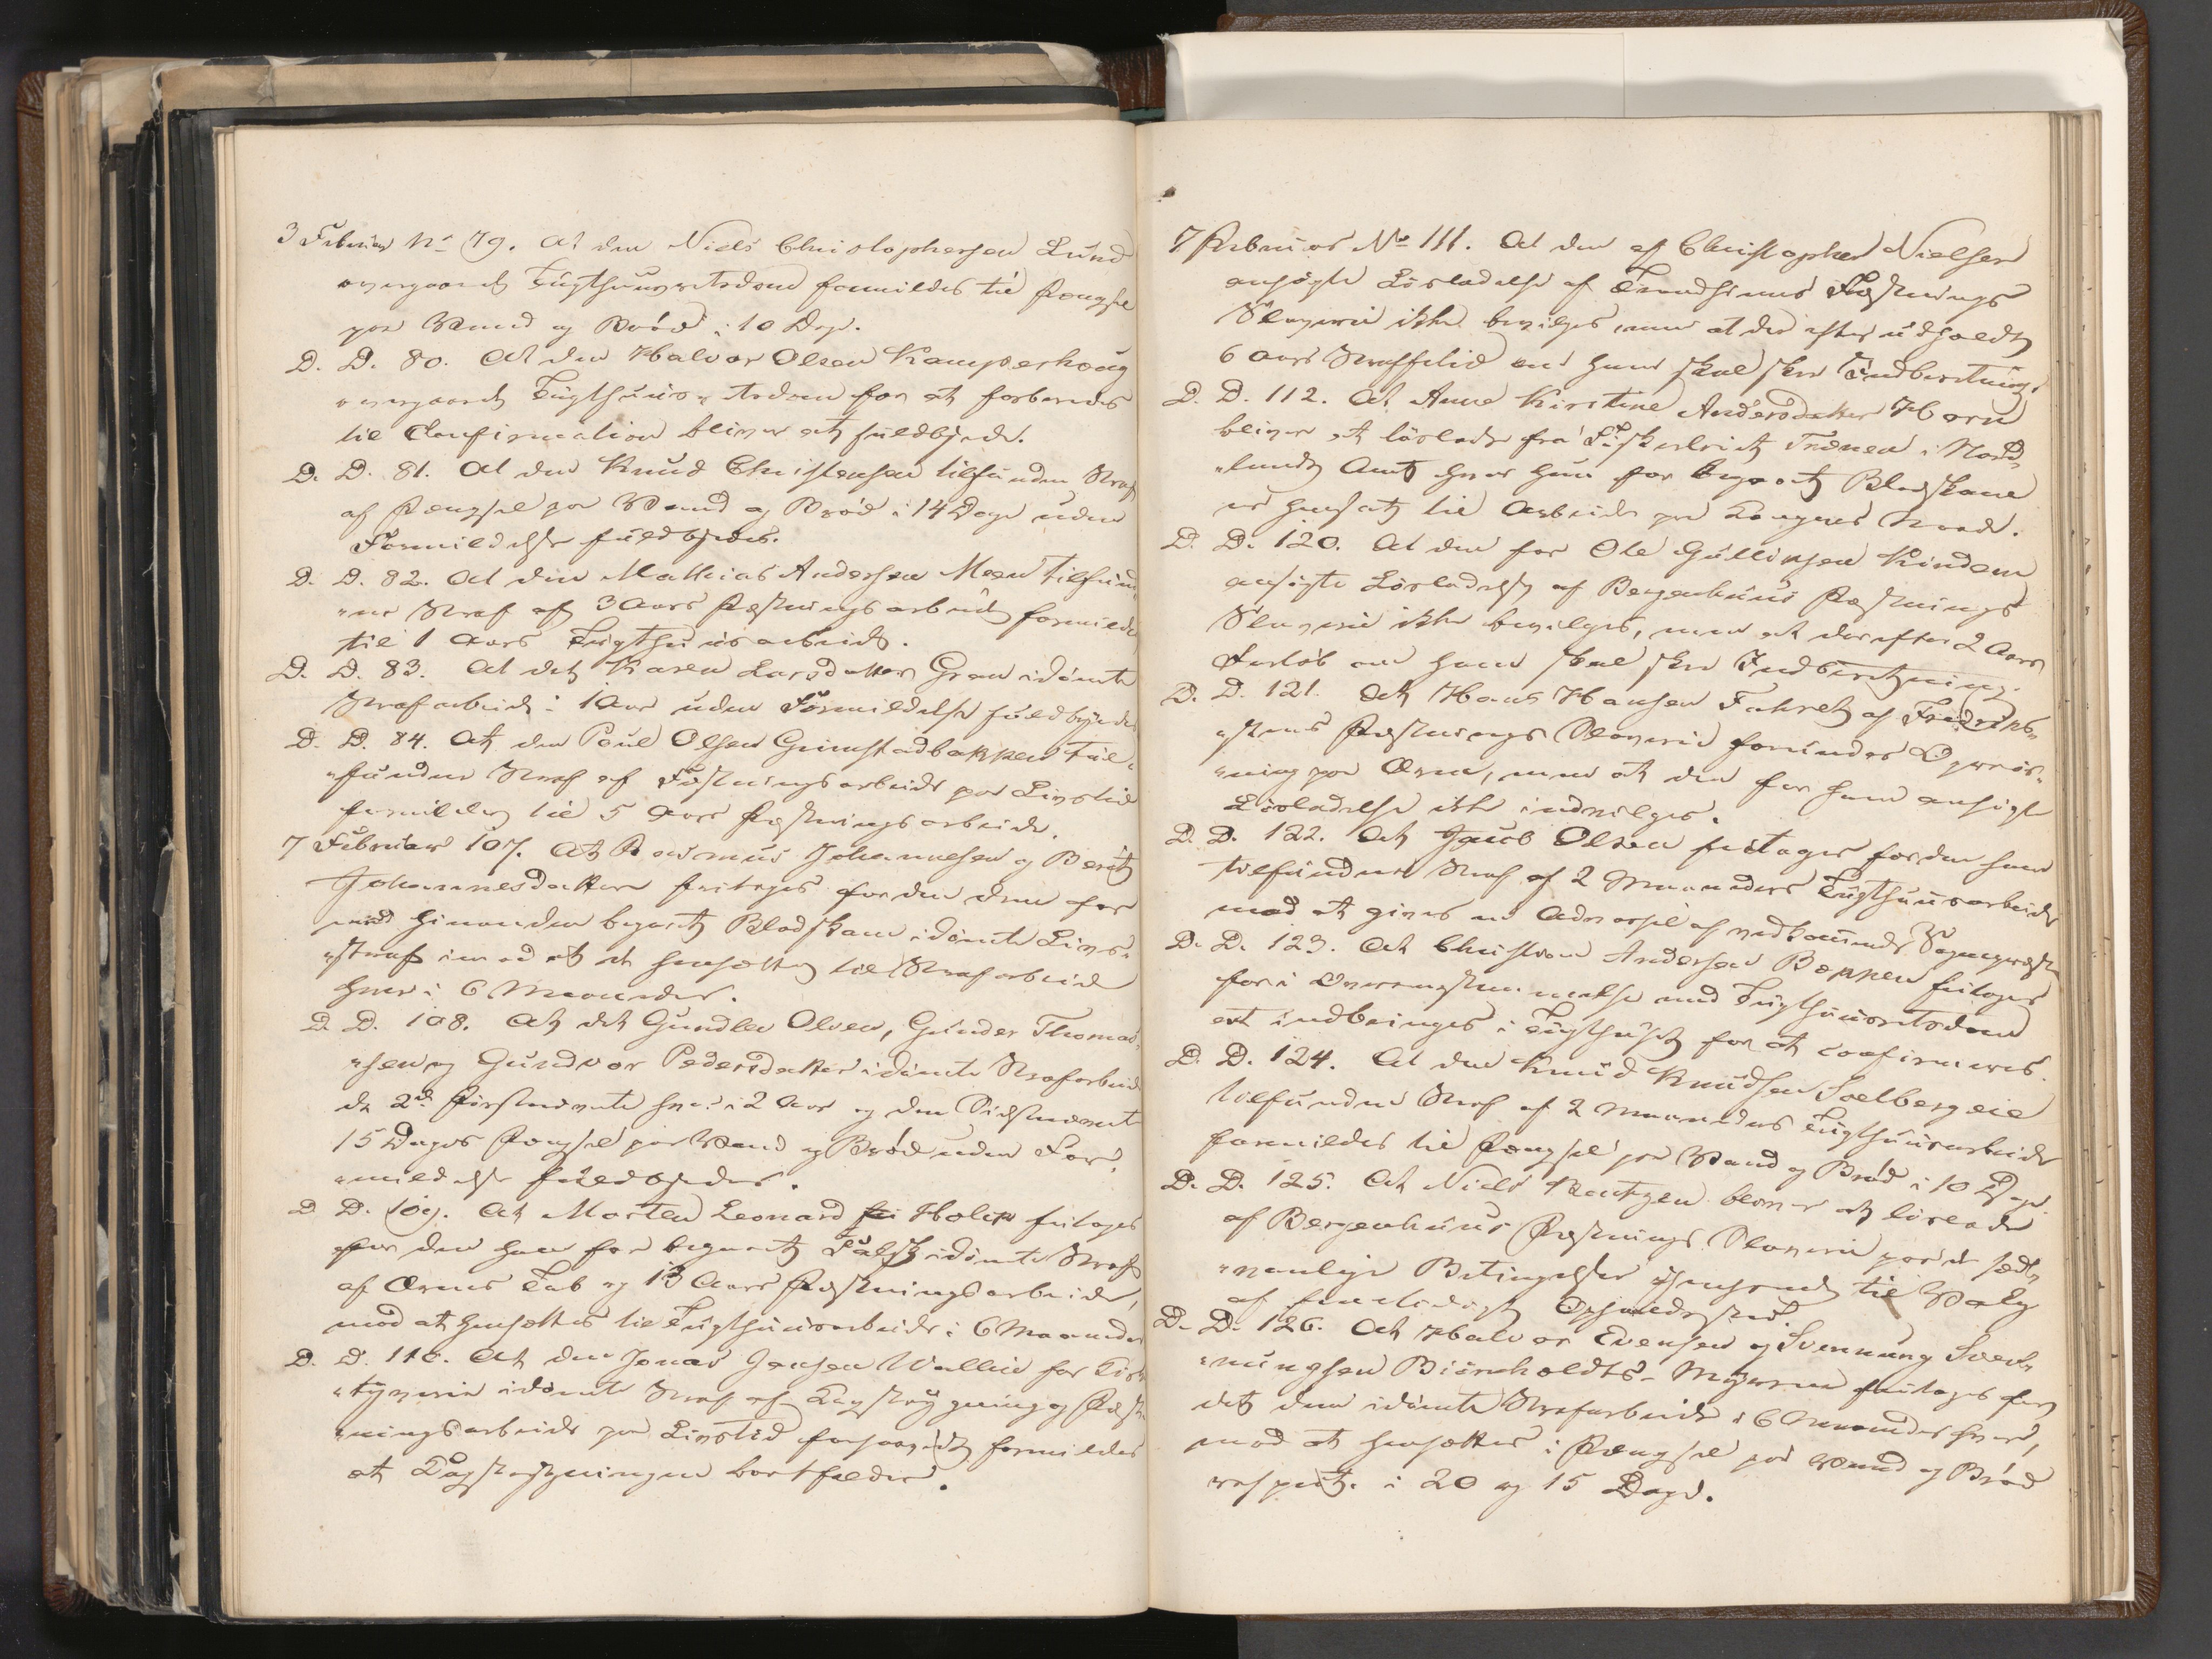 3 Februar No 79. At den Niels Christophersen Lund
overgaaende Tugthuusretsdom formildes til Fængsel
paa Vand og Brød i 10 Dage.
D. D. 80. At den Halvor Olsen Kamperhoug
overgaaende Tugthuusretsdom for at forberedes
til Confirmation bliver at fuldbyrde.
D. D. 81. At den Knud Christensen tilfundne Straf
af Fængsel paa Vand og Brød i 14 Dage uden
Formildelse fuldbyrdes.
D. D. 82. At den Mathias Andersen Meen tilfund„
„ne Straf af 3 Aars Fæstningsarbeide formildes
til 1 Aars Tugthuusarbeide.
D. D. 83. At det Karen Larsdatter Gran idømte
Strafarbeide i 1 Aar uden Formildelse fuldbyrdes
D. D. 84. At den Poul Olsen Grimstadbakken til„
„fundne Straf af Fæstningsarbeide paa Livstid
formildes til 5 Aars Fæstningsarbeide.
7 Februar 107. At Rasmus Johannesen og Berit
Johannesdatter fritages for den dem for
med hinanden begaaet Blodskam idømte Livs„
„straf imod at at hensættes til Strafarbeide
hver i 6 Maaneder.
D. D. 108. At det Gundler Olsen, Gunder Thomas„
„sen og Gundvor Pedersdatter idømte Strafarbeide
de 2de førstnævnte hver i 2 Aar og den Sidstnævnte
15 Dages Fængsel paa Vand og Brød uden For„
„mildelse fuldbyrdes.
D. D. 109. At Morten Leonard Holck fritages
for den ham for begaaet Falsk idømte Straf
af Æres Tab og 13 Aars Fæstningsarbeide,
mod at hensættes til Tugthuusarbeide i 6 Maaneder
D. D. 110. At den Jonas Jensen Wallin for
„tyverie idømte Straf af Kagstrygning og Fæst„
„ningsarbeide paa Livstid forsaavidt formildes
at Kagstrygningen bortfalder.
7 Februar No 111. At den af Christopher Nielsen
ansøgte Løsladelse af Trondhiems Fæstnings
Slaverie ikke bevilges, men at der efter udholdt
6 Aars Straffetid om ham skal skee Indberetning.
D. D. 112. At Anne Kirstine Andersdatter Horn
bliver at løslade fra Fiskeleiet Trænen i Nord„
„lands Amt hvor hun for begaaet Blodskam
er hensat til Arbeide paa Kongens Naade.
D. D. 120. At den for Ole Gullixsen Kindem
ansøgte Løsladelse af Bergenhuus Fæstnings
Slaverie ikke bevilges, men at der efter 2 Aars
Forløb om ham skal skee Indberetning.
D. D. 121. At Hans Hansen Fahret af Fredriks„
„stens Fæstnings Slaverie forundes Opreis„
„ning paa Æren, men at den for ham ansøgte
Løsladelse ikke indvilges.
D. D. 122. At Jacob Olsen fritages for den ham
tilfundne Straf af 2 Maaneders Tugthuusarbeide
mod at gives en Advarsel af vedkommende Sognepræst
D. D. 123. At Christian Andersen Bakken fritages
for i Overensstemmelse med Tugthuusretsdom
at indbringes i Tugthuset for at confirmeres.
D. D. 124. At den Knud Knudsen Solbergeie
tilfundne Straf af 2 Maaneders Tugthuusarbeide
formildes til Fængsel paa Vand og Brød i 10 Dage.
D. D. 125. At Niels Rentzen bliver at løslade
af Bergenhuus Fæstnings Slaverie paa de sædt„
„vanlige Betingelser til Valg
af Opholdssted.
D. D. 126. At Halvor Evensen og Svennung Sven„
„nungsen Biørnholdts-Myrene fritages for
det dem idømte Strafarbeide i 6 Maaneder hver,
mod at hensættes i Fængsel paa Vand og Brød
respect. i 20 og 15 Dage.